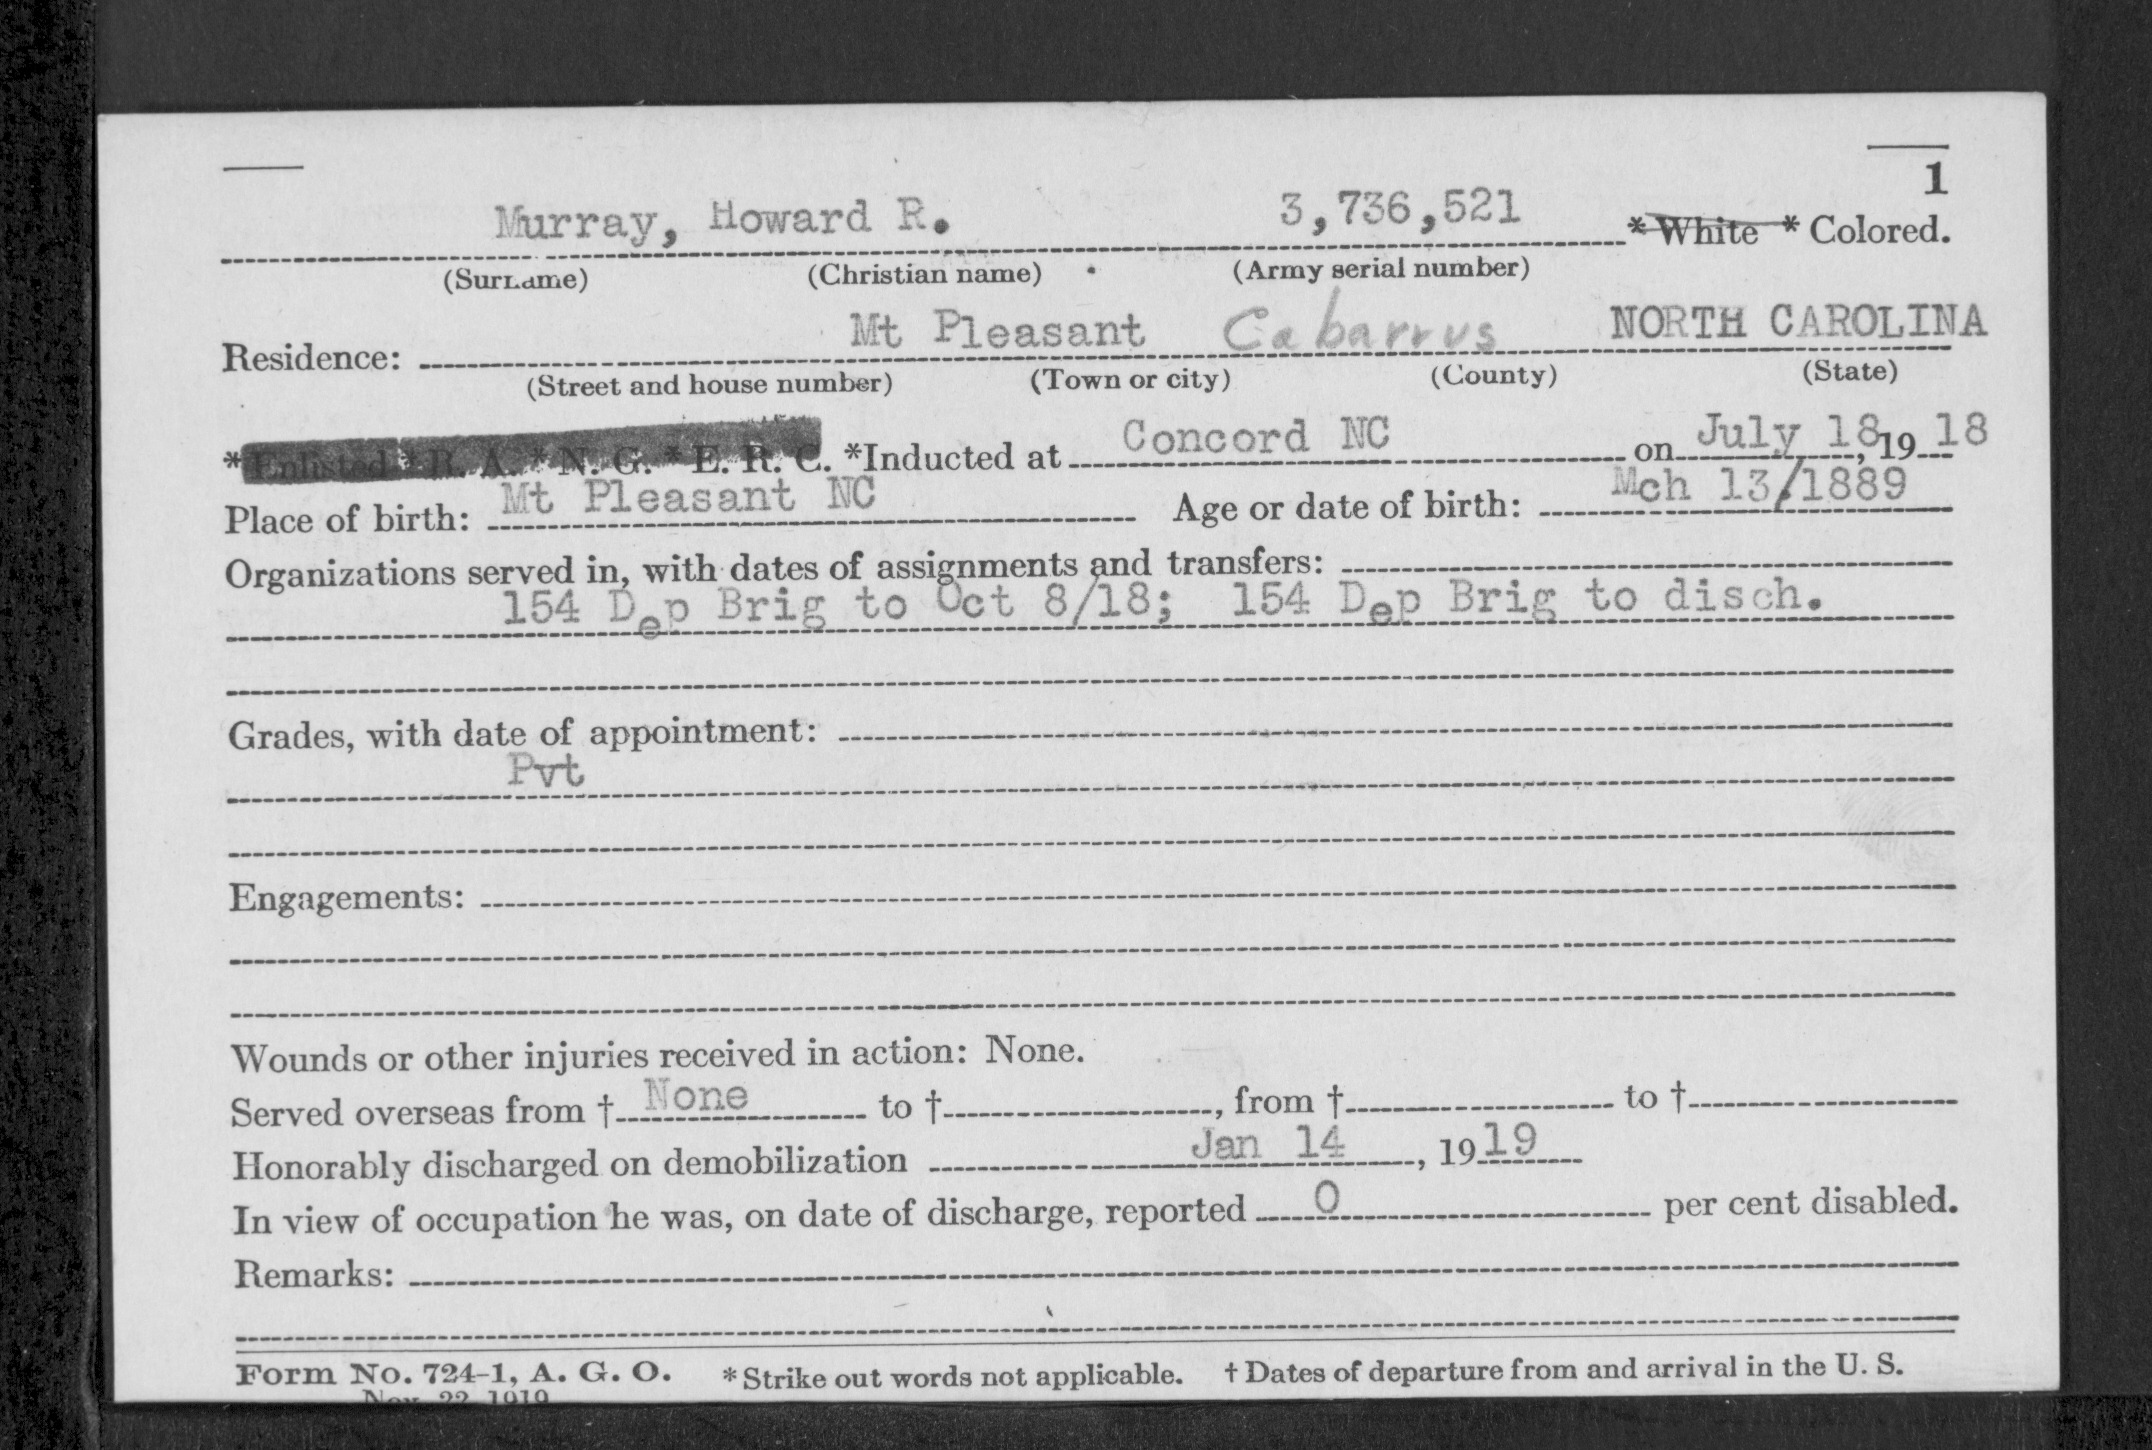 1
Murray, Howard R. 3,736,521 * White * Colored.
(Surname) (Christian name) (Army serial number)
Residence: Mt Pleasant Cabarrus NORTH CAROLINA
(Street and house number) (Town or city) (County) (State)
* Enlisted * R. A. * N. G. * E. R. C. *Inducted at Concord NC on July 18, 19 18
Place of birth: Mt Pleasant NC Age or date of birth: Mch 13/1889
Organizations served in, with dates of assignments and transfers:
154 Dep Brig to Oct 8/18; 154 Dep Brig to disch.
Grades, with date of appointment:
Pvt
Engagements:
Wounds or other injuries received in action: None.
Served overseas from † None to †, from † to †
Honorably discharged on demobilization Jan 14, 19 19
In view of occupation he was, on date of discharge, reported 0 per cent disabled.
Remarks:
Form No. 724-1, A. G. O. * Strike out words not applicable. † Dates of departure from and arrival in the U. S.
Nov. 22, 1919